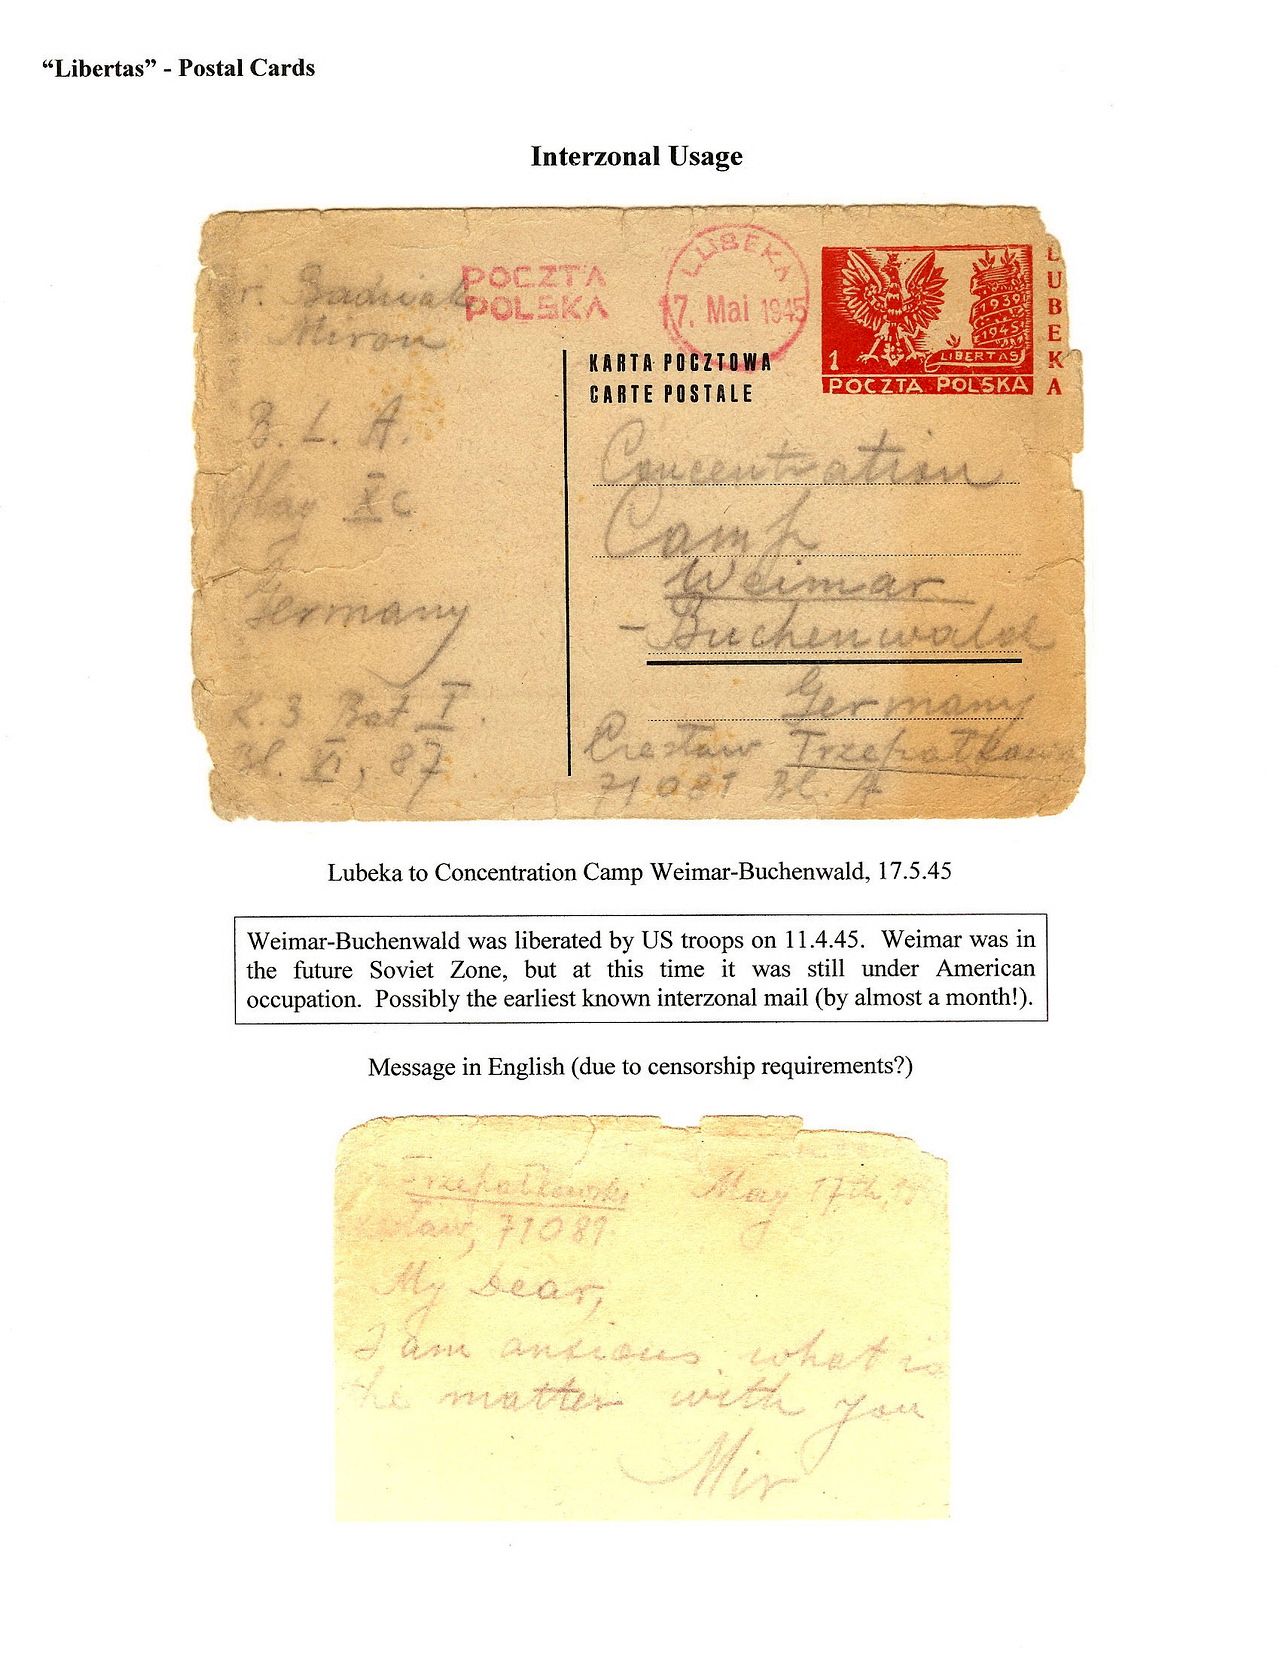 “Libertas” - Postal Cards
Interzonal Usage
r. Badwiak
Miron
B. L. A.
flag X C
Germany
R. 3 Bat I.
Bl. VI, 87.
POCZTA
POLSKA
LUBEKA
17. Mai 1945
1939
1945
LIBERTAS
1
POCZTA POLSKA
LUBEKA
KARTA POCZTOWA
CARTE POSTALE
Concentration
Camp
Weimar
- Buchenwald
Germany
Czesław Trzepałkow
71081 Bl. A
Lubeka to Concentration Camp Weimar-Buchenwald, 17.5.45
Weimar-Buchenwald was liberated by US troops on 11.4.45. Weimar was in
the future Soviet Zone, but at this time it was still under American
occupation. Possibly the earliest known interzonal mail (by almost a month!).
Message in English (due to censorship requirements?)
Trzepałkowski May 17th, 19
sław, 71081
My Dear,
I am anxious what is
the matter with you
Mir